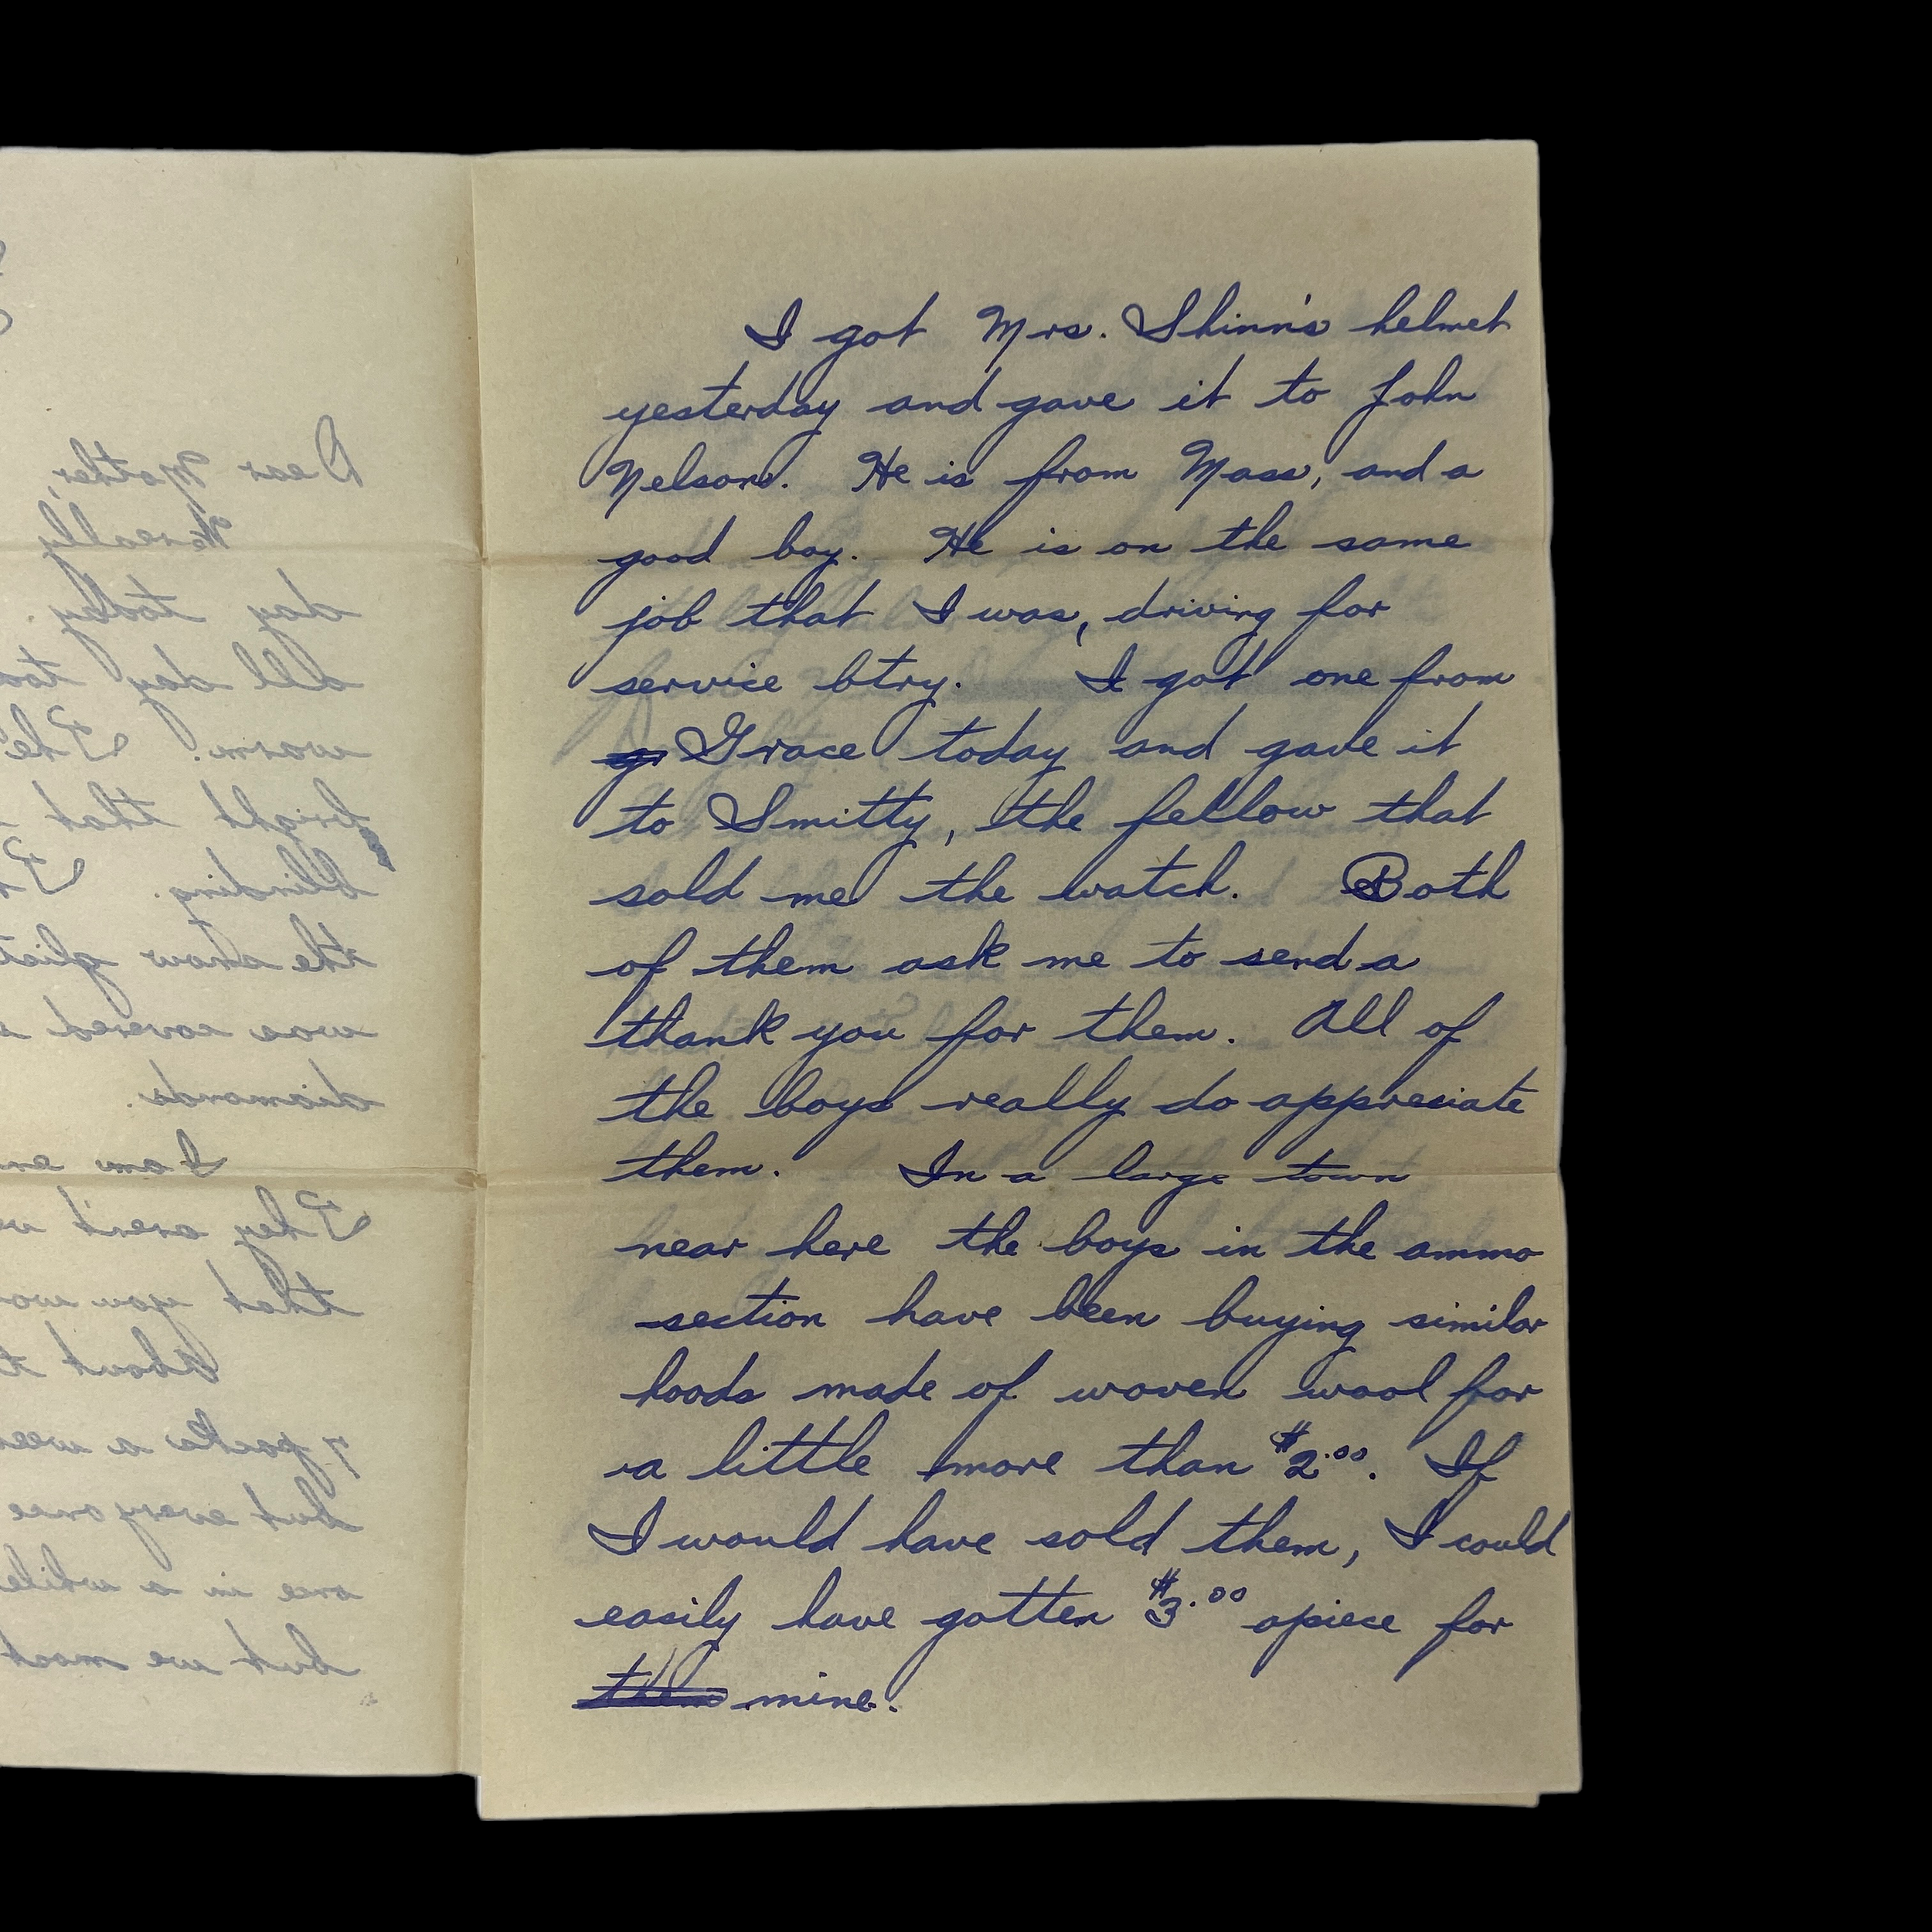 I got Mrs. Shinn's helmet
yesterday and gave it to John
Nelson. He is from Mass, and a
good boy. He is on the same
job that I was, driving for
service btry. I got one from
Grace today and gave it
to Smitty, the fellow that
sold me the watch. Both
of them ask me to send a
thank you for them. All of
the boys really do appreciate
them. In a large town
near here the boys in the ammo
section have been buying similar
hoods made of woven wool for
a little more than $2.00. If
I would have sold them, I could
easily have gotten $3.00 apiece for
them mine.
Dear Mother,
We really
day today.
all day
warm. The
bright that
blinding.
the snow
was covered
diamonds.
I am
They aren't
that you
About
7 packs a
but everyone
one in a while
but we most